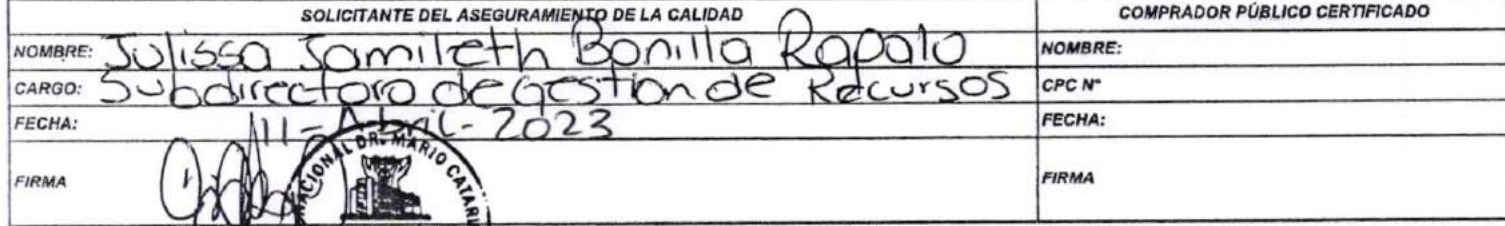 SOLICITANTE DEL ASEGURAMIENTO DE LA CALIDAD COMPRADOR PÚBLICO CERTIFICADO
NOMBRE: Julissa Jamileth Bonilla Rapalo NOMBRE:
CARGO: Subdirectora de gestion de Recursos CPC N°
FECHA: 11-Abril-2023 FECHA:
FIRMA FIRMA
NACIONAL DR. MARIO CATARI